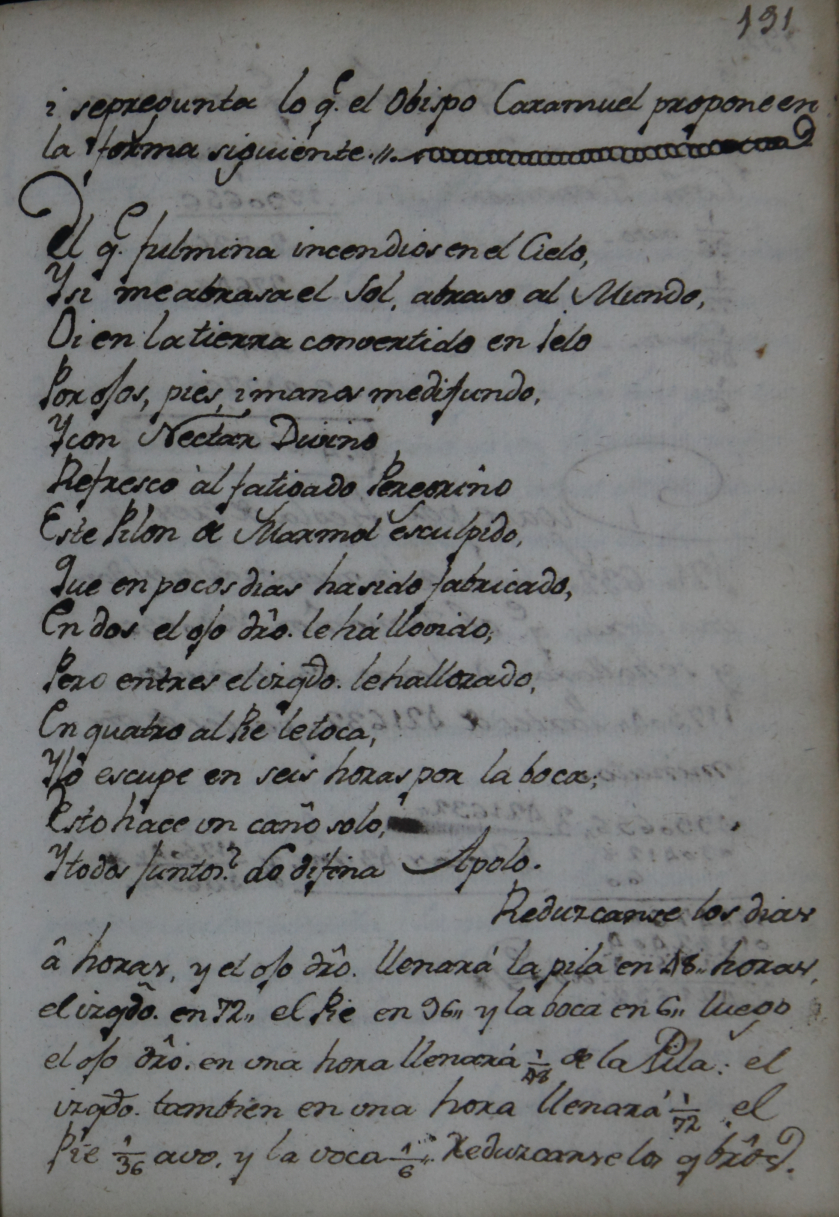 131
i sepregunta lo q.e el Obispo Caramuel propone en
la forma siguiente.//.
El q.e fulmina incendios en el Cielo,
Y si me abrasa el Sol, abraso al Mundo,
Oi en la tierra convertido en Ielo
Por ojos, pies, i manos me difundo,
Y con Nectar Divino
Refresco àl fatigado Peregrino
Este Pilon de Marmol esculpido,
Que en pocos dias ha sido fabricado,
En dos el ojo dr̂o. le há llovido,
Pero en tres el izq̂do. le ha llorado,
En quatro al Pie le toca,
Y lo escupe en seis horas por la boca;
Esto hace un caño solo,
Y todos juntos? Lo difina Apolo.
Reduzcanse los dias
â horas, y el ojo dr̂o. llenará la pila en 48,, horas,
el izq̂do. en 72,, el Pie en 96,, y la boca en 6,, luego
el ojo dr̂o. en una hora llenará 1/48 de la Pila: el
izq̂do. tambien en una hora llenará 1/72 el
Pie 1/36 avo. y la voca 1/6,, Reduzcanse los qbr̂os.